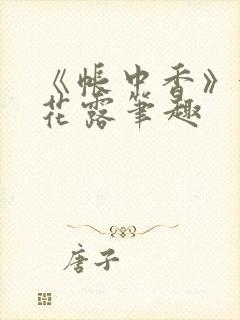 《帐中香》
花露笔趣
唐子